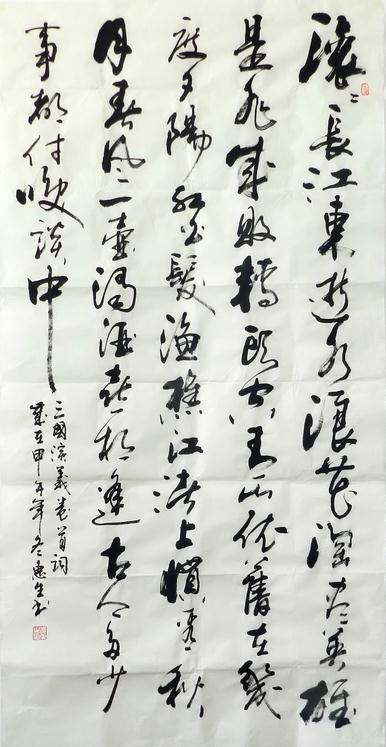 滾〻長江東逝水浪花淘尽英雄
是非成敗轉頭空青山依舊在幾
度夕陽紅白髮漁樵江渚上慣看秋
月春风一壺濁酒喜相逢古今多少
事都付咲談中
三國演義卷首詞
歲在甲午年冬惠生书